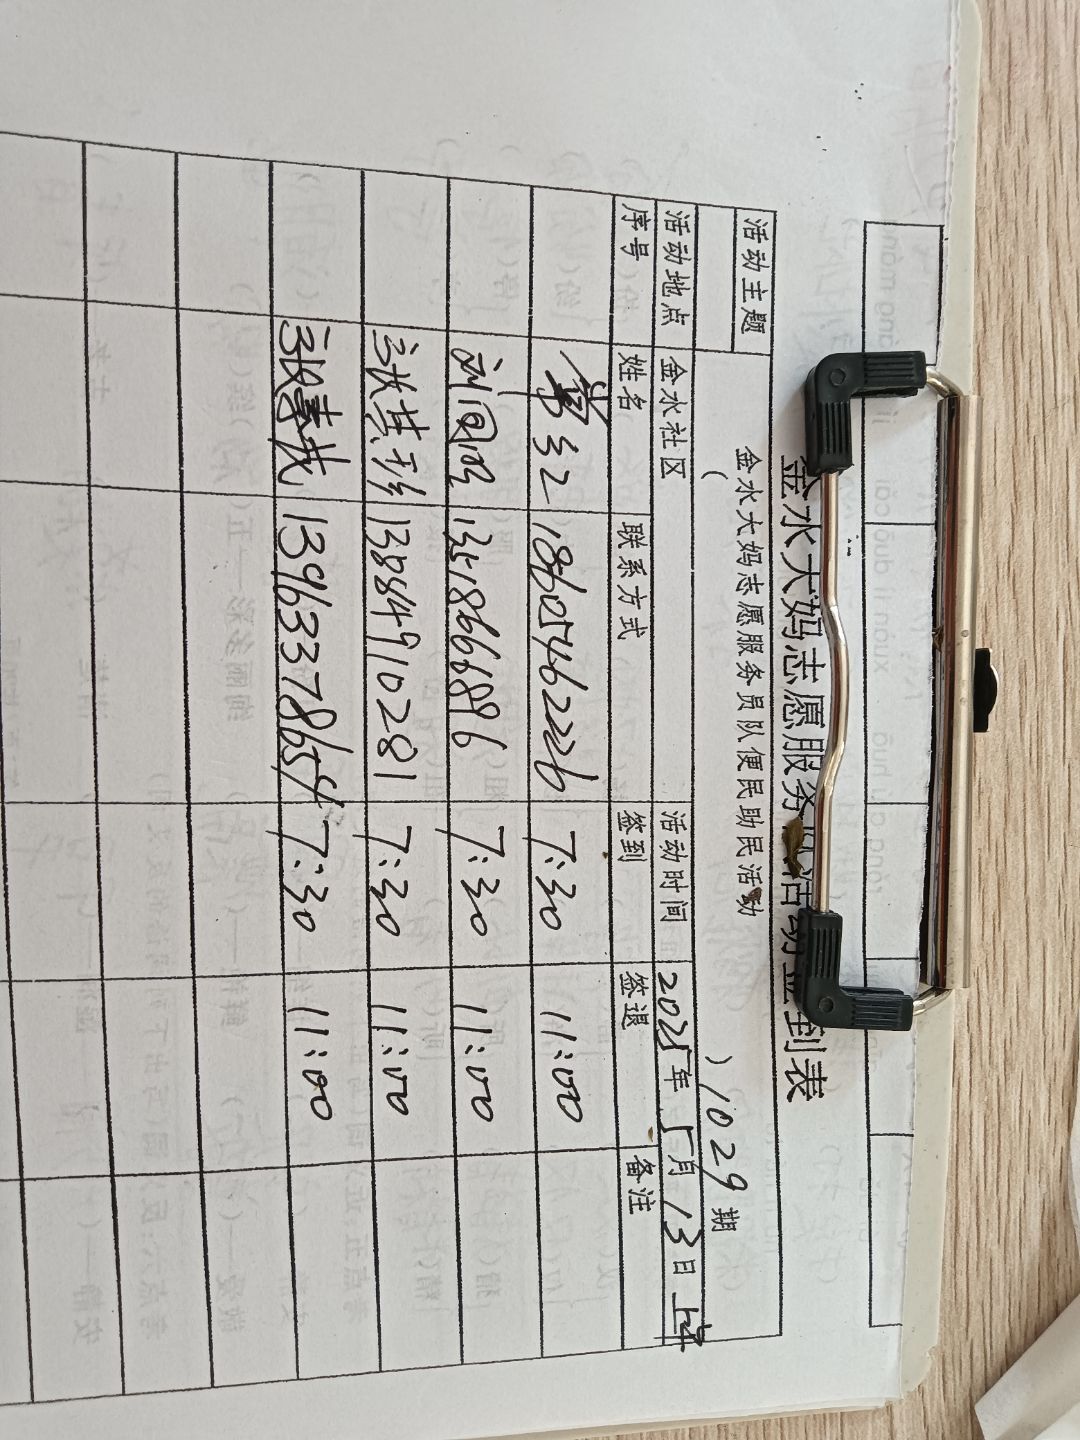 金水大妈志愿服务队活动签到表
活动主题 金水大妈志愿服务员队便民助民活动
( ) 1029期
活动地点 金水社区 活动时间 2025年5月13日上午
序号 姓名 联系方式 签到 签退 备注
18605462226 7:30 11:00
13518666896 7:30 11:00
13884910281 7:30 11:00
13963378654 7:30 11:00